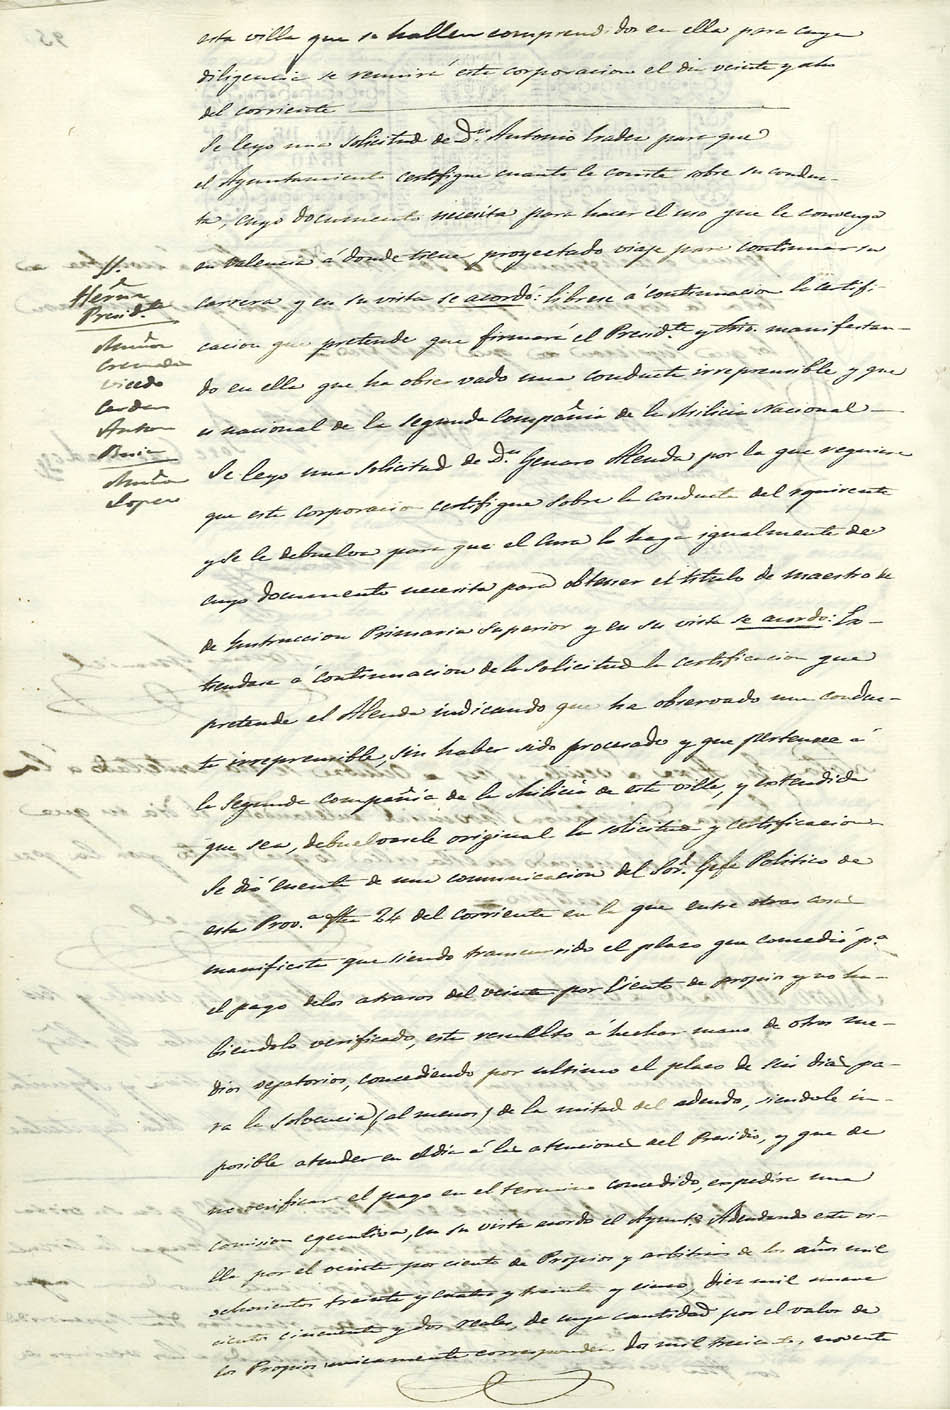 esta villa que se hallen comprendidos en ella para cuya
diligencia se reunirá esta corporacion el dia veinte y ocho
del corriente
Se leyo una solicitud de Dn. Antonio para que
el Ayuntamiento certifique cuanto le conste sobre su conduc-
ta, cuyo documento necesita para hacer el uso que le convenga
en Valencia á donde tiene proyectado viaje para continuar su
carrera y en su vista se acordó: librese á continuacion la certifi-
cacion que pretende que firmará el Presidte. y Srio. manifestan-
do en ella que ha observado una conducta irreprensible y que
es nacional de la segunda Compañia de la Milicia Nacional
Se leyo una solicitud de Dn. Genaro Alenda por la que requiere
que esta corporacion certifique sobre la conducta del esquisente
y se le debuelva para que el Cura lo haga igualmente de
cuyo documento necesita para obtener el titulo de maestro de
de Instruccion Primaria Superior y en su vista se acordo: Es-
tiendase á continuacion de la solicitud la certificacion que
pretende el Alenda indicando que ha observado una conduc-
ta irreprensible, sin haber sido procesado y que pertenece á
la Segunda compañia de la Milicia de esta villa, y estendida
que sea, debuelvasele original la solicitud y certificacion
Se dió cuenta de una comunicacion del Sor. Gefe Politico de
esta Prova. fha 24 del corriente en la que entre otras cosas
manifiesta que siendo transcurrido el plazo que concedió pa.
el pago de los atrasos del veinte por Ciento de propios y no ha-
biendolo verificado, esta resuelto á hechar mano de otros me-
dios vejatorios, concediendo por ultimo el plazo de seis dias pa-
ra la solvencia (al menos) de la mitad del adeudo, siendole im-
posible atender en el dia á las atenciones del Presidio, y que de
no verificar el pago en el termino concedido, expedira una
comision egecutiva, en su vista acordo el Ayunto. Adeudando esta vi-
lla por el veinte por ciento de Propios y arbitrios de los años mil
ochocientos treinta y cuatro y treinta y cinco, diez mil nueve
cientos cincuenta y dos reales, de cuya cantidad por el valor de
los Propios unicamente corresponden dos mil trecientos noventa
SS.
Herna.
Presidte.
Muñoz
Cremades
Vicedo
Cerdan
Anton
Beria
Muñoz
Lopez